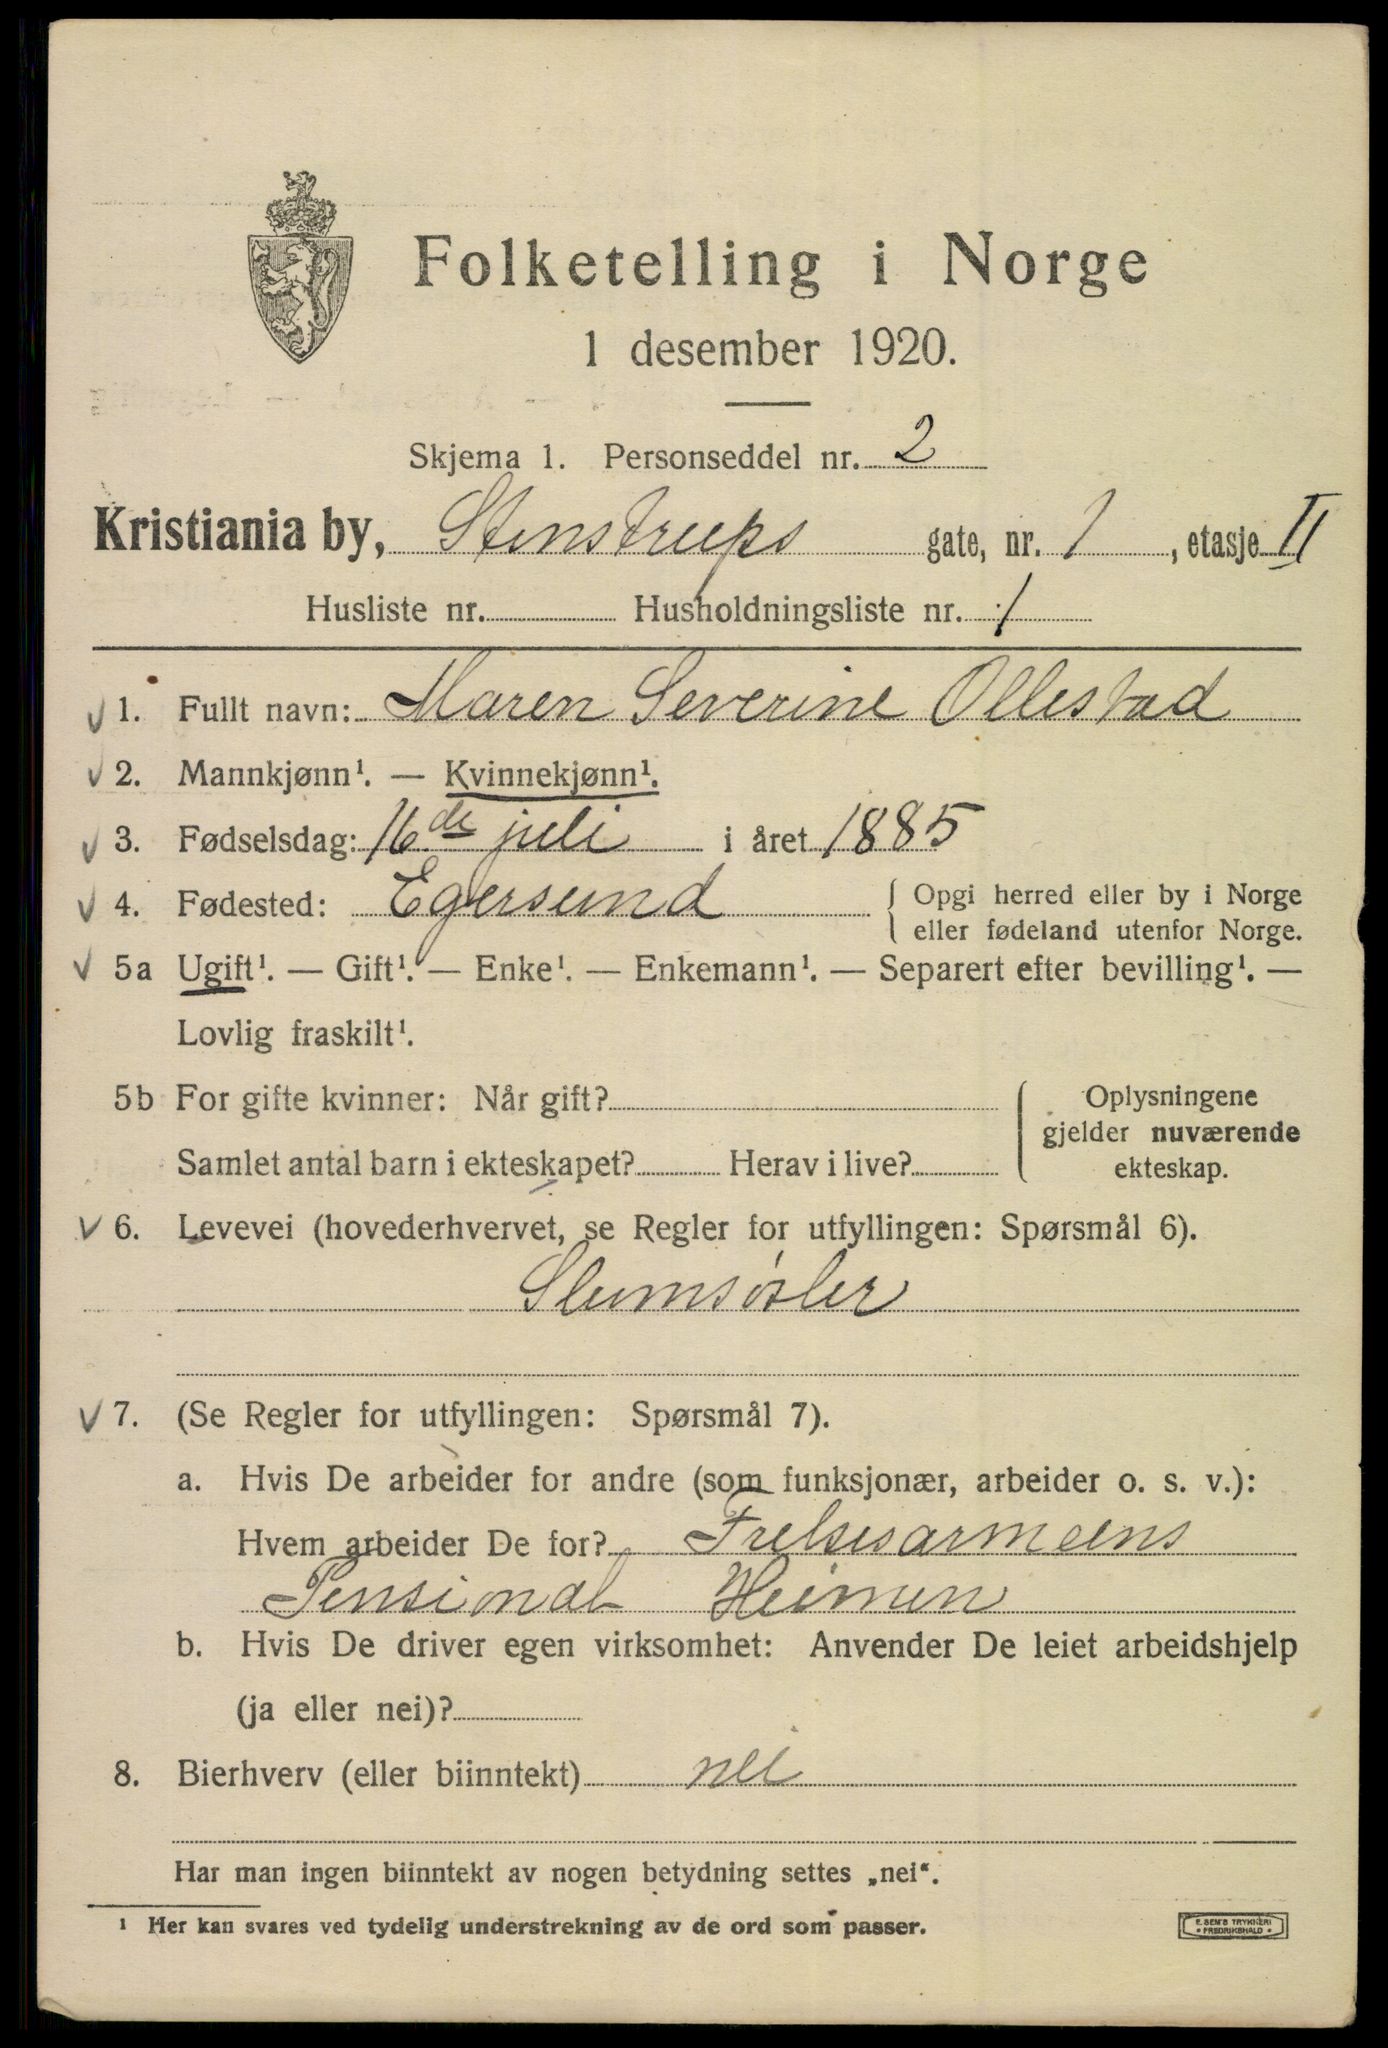 Folketelling i Norge
1 desember 1920.
Skjema 1. Personseddel nr. 2
Kristiania by, Stenstrups gate, nr. 1, etasje II
Husliste nr. Husholdningsliste nr. 1
1. Fullt navn: Maren Severine Ollestad
2. Mannkjønn¹. — Kvinnekjønn¹.
3. Fødselsdag: 16de juli i året 1885
4. Fødested: Egersund { Opgi herred eller by i Norge
eller fødeland utenfor Norge.
5a Ugift¹. — Gift¹. — Enke¹. — Enkemann¹. — Separert efter bevilling¹. —
Lovlig fraskilt¹.
5b For gifte kvinner: Når gift?
Samlet antal barn i ekteskapet? Herav i live?
Oplysningene
gjelder nuværende
ekteskap.
6. Levevei (hovederhvervet, se Regler for utfyllingen: Spørsmål 6).
Slumsøster
7. (Se Regler for utfyllingen: Spørsmål 7).
a. Hvis De arbeider for andre (som funksjonær, arbeider o. s. v.):
Hvem arbeider De for? Frelsesarmeens
Pensionat Heimen
b. Hvis De driver egen virksomhet: Anvender De leiet arbeidshjelp
(ja eller nei)?
8. Bierhverv (eller biinntekt) nei
Har man ingen biinntekt av nogen betydning settes „nei“.
¹ Her kan svares ved tydelig understrekning av de ord som passer.
E. SEM'S TRYKKERI
FREDRIKSHALD